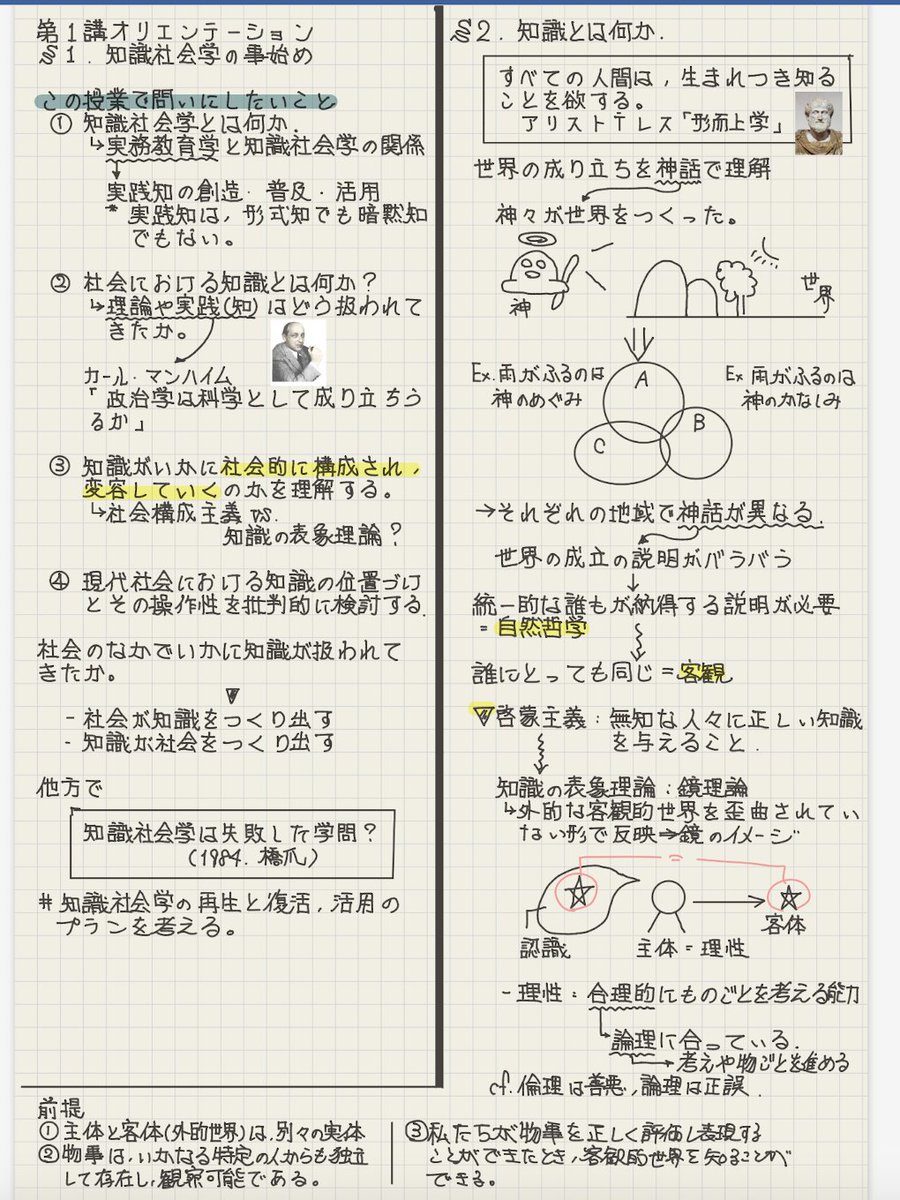 第1講オリエンテーション
§1. 知識社会学の事始め
この授業で問いにしたいこと
① 知識社会学とは何か.
↳実務教育学と知識社会学の関係
↓
実践知の創造・普及・活用
* 実践知は，形式知でも暗黙知
でもない。
② 社会における知識とは何か？
↳理論や実践(知)はどう扱われて
きたか。
カール・マンハイム
「政治学は科学として成り立ちう
るか」
③ 知識がいかに社会的に構成され，
変容していくのかを理解する。
↳社会構成主義 vs.
知識の表象理論？
④ 現代社会における知識の位置づけ
とその操作性を批判的に検討する.
社会のなかでいかに知識が扱われて
きたか。
- 社会が知識をつくり出す
- 知識が社会をつくり出す
他方で
知識社会学は失敗した学問？
(1984. 橋爪)
# 知識社会学の再生と復活，活用の
プランを考える。
§2. 知識とは何か.
すべての人間は，生まれつき知る
ことを欲する。
アリストテレス「形而上学」
世界の成り立ちを神話で理解
神々が世界をつくった。
神
世界
Ex. 雨がふるのは
神のめぐみ
A
B
C
Ex 雨がふるのは
神のかなしみ
→それぞれの地域で神話が異なる.
世界の成立の説明がバラバラ
↓
統一的な誰もが納得する説明が必要
= 自然哲学
誰にとっても同じ = 客観
啓蒙主義：無知な人々に正しい知識
を与えること.
知識の表象理論：鏡理論
↳外的な客観的世界を歪曲されてい
ない形で反映→鏡のイメージ
=
認識
主体 = 理性
客体
- 理性：合理的にものごとを考える能力
論理に合っている.
考えや物ごとを進める
cf. 倫理は善悪，論理は正誤.
前提
① 主体と客体(外的世界)は，別々の実体
② 物事は，いかなる特定の人からも独立
して存在し，観察可能である。
③ 私たちが物事を正しく評価し表現する
ことができたとき，客観的世界を知ることが
できる。